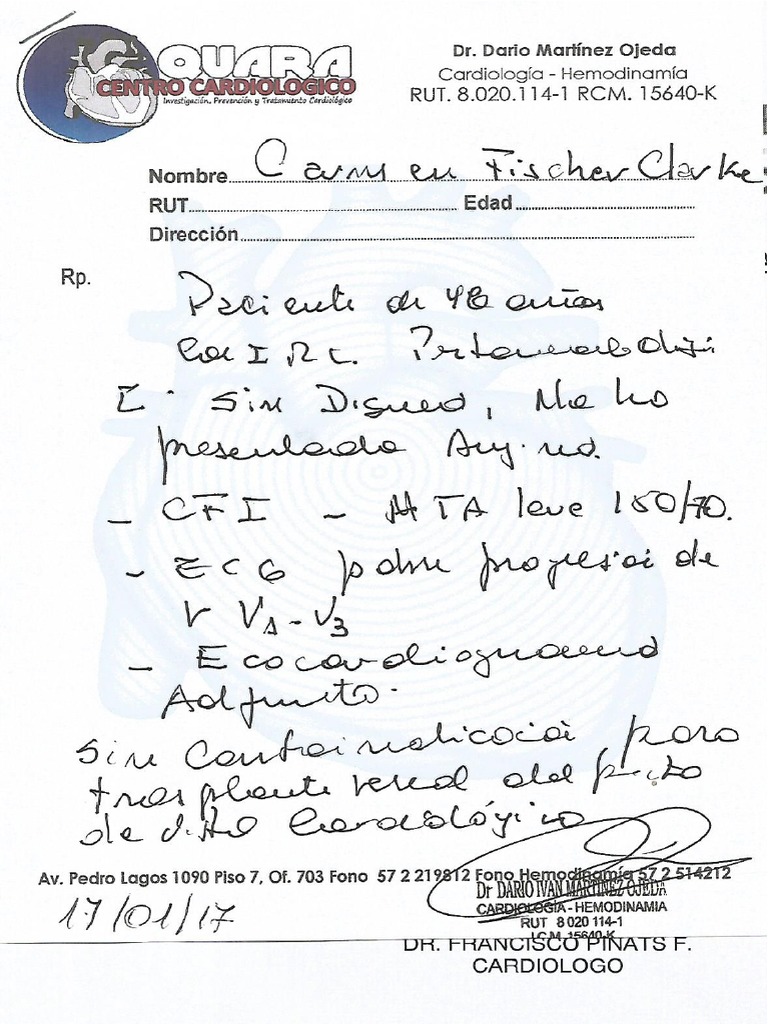 QUARA
CENTRO CARDIOLOGICO
Investigación, Prevención y Tratamiento Cardiológico
Dr. Dario Martínez Ojeda
Cardiología - Hemodinamía
RUT. 8.020.114-1 RCM. 15640-K
Nombre Carmen Fischer Clarke
RUT Edad
Dirección
Rp.
Paciente de 48 años
con I R C.
Sin Disnea, No ha
presentado Angina.
- CFI - HTA leve 150/70.
- ECG pobre progresión de
r V1-V3
- Ecocardiograma
Adjunto.
Sin Contraindicación para
trasplante renal del punto
de vista Cardiológico
Av. Pedro Lagos 1090 Piso 7, Of. 703 Fono 57 2 219812 Fono Hemodinamía 57 2 514212
17/01/17
Dr DARIO IVAN MARTINEZ OJEDA
CARDIOLOGÍA - HEMODINAMIA
RUT 8 020 114-1
I.C.M. 15640-K
DR. FRANCISCO PIÑATS F.
CARDIOLOGO